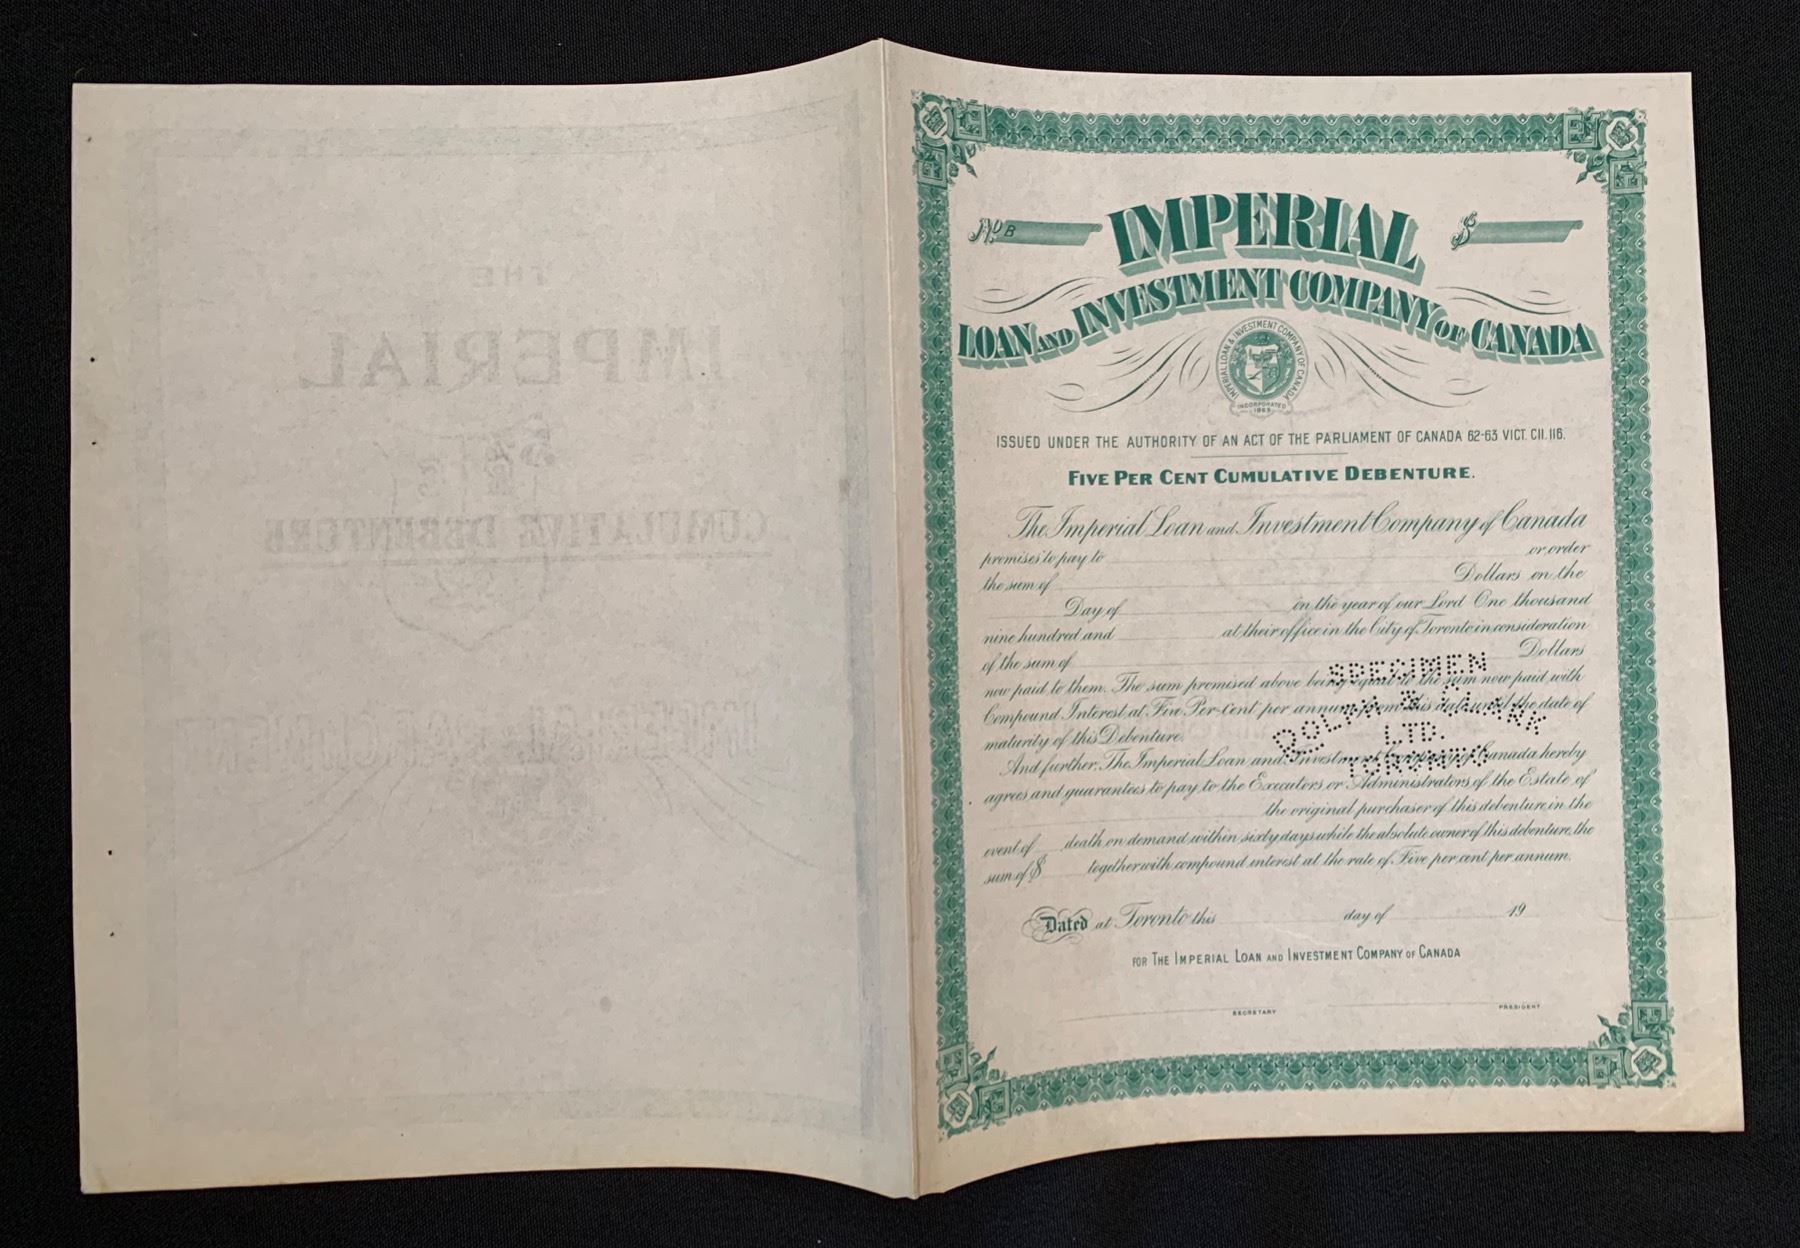 THE
IMPERIAL
CUMULATIVE DEBENTURE
No. B
$
IMPERIAL
LOAN AND INVESTMENT COMPANY OF CANADA
IMPERIAL LOAN & INVESTMENT COMPANY OF CANADA
INCORPORATED
1869
ISSUED UNDER THE AUTHORITY OF AN ACT OF THE PARLIAMENT OF CANADA 62-63 VICT. CII. 116.
FIVE PER CENT CUMULATIVE DEBENTURE.
The Imperial Loan and Investment Company of Canada
promises to pay to or order
the sum of Dollars on the
Day of in the year of our Lord One thousand
nine hundred and at their office in the City of Toronto in consideration
of the sum of Dollars
now paid to them. The sum promised above being equal to the sum now paid with
Compound Interest at Five Per-cent per annum from this date until the date of
maturity of this Debenture.
And further, The Imperial Loan and Investment Company of Canada hereby
agrees and guarantees to pay to the Executors or Administrators of the Estate of
the original purchaser of this debenture in the
event of death on demand within sixty days while the absolute owner of this debenture, the
sum of $ together with compound interest at the rate of Five per cent per annum.
SPECIMEN
ROLPH & CLARK
LTD.
TORONTO
Dated at Toronto this day of 19
FOR THE IMPERIAL LOAN AND INVESTMENT COMPANY OF CANADA
SECRETARY
PRESIDENT